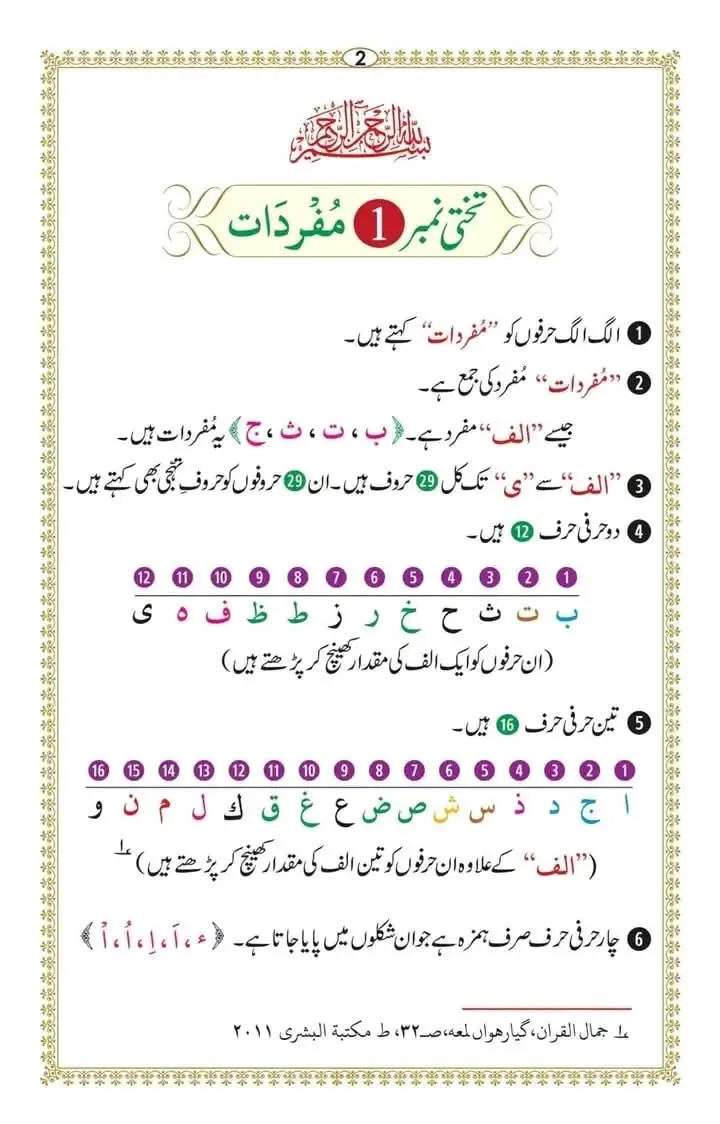 2
بسم الله الرحمن الرحيم
تختی نمبر 1 مُفْرَدَات
1 الگ الگ حرفوں کو ”مُفردات“ کہتے ہیں۔
2 ”مُفردات“ مُفرد کی جمع ہے۔
جیسے ”الف“ مفرد ہے۔ ﴿ب ، ت ، ث ، ج﴾ یہ مُفردات ہیں۔
3 ”الف“ سے ”ی“ تک کل 29 حروف ہیں۔ ان 29 حروفوں کو حروفِ تہجّی بھی کہتے ہیں۔
4 دو حرفی حرف 12 ہیں۔
1 2 3 4 5 6 7 8 9 10 11 12
ب ت ث ح خ ر ز ط ظ ف ه ی
(ان حرفوں کو ایک الف کی مقدار کھینچ کر پڑھتے ہیں)
5 تین حرفی حرف 16 ہیں۔
1 2 3 4 5 6 7 8 9 10 11 12 13 14 15 16
ا ج د ذ س ش ص ض ع غ ق ك ل م ن و
(”الف“ کے علاوہ ان حرفوں کو تین الف کی مقدار کھینچ کر پڑھتے ہیں) ؎۱
6 چار حرفی حرف صرف ہمزہ ہے جو ان شکلوں میں پایا جاتا ہے۔ ﴿ء ، اَ ، اِ ، اُ ، اْ﴾
؎۱ جمال القران، گیارهواں لمعه، صـ۳۲، ط مكتبة البشرى ۲۰۱۱